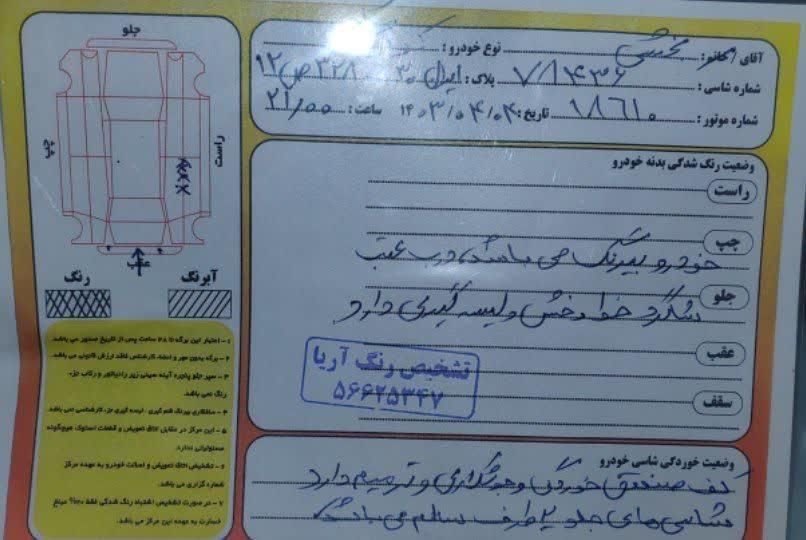 جلو
چپ
راست
عقب
رنگ
آبرنگ
۱ - اعتبار این برگه تا ۴۸ ساعت پس از تاریخ صدور می باشد.
۲ - برگه بدون مهر و امضاء کارشناس فاقد ارزش قانونی می باشد.
۳ - سپر جلو پنجره آینه سینی زیر رادیاتور و رکاب جزء
رنگ نمی باشد.
۴ - صافکاری بیرنگ لیسه گیری جزء کارشناسی نمی باشد
۵ - این مرکز در مقابل اتاق تعویض و قطعات استوک هیچگونه
مسئولیتی ندارد.
۶ - تشخیص اتاق تعویض و اصالت خودرو به عهده مرکز
شماره گذاری می باشد.
۷ - در صورت تشخیص اشتباه رنگ شدگی فقط مبلغ
خسارت به عهده این مرکز می باشد.
آقای / خانم : بخشی نوع خودرو :
شماره شاسی : ۷۸۴۳۶ پلاک : ایران ۳۰ ۳۲۸ ص ۱۲
شماره موتور : ۱۸۶۱۰ تاریخ : ۱۴۰۳/۰۴/۰۴ ساعت : ۲۱/۰۰
وضعیت رنگ شدگی بدنه خودرو
راست
چپ
خودرو بیرنگ می باشد، درب عقب
جلو
شاگرد خط و خش و لیسه گیری دارد
عقب
سقف
تشخیص رنگ آریا
۵۶۶۲۵۳۴۷
وضعیت خوردگی شاسی خودرو
کف صندوق خوردگی و جوشکاری و ترمیم دارد
شاسی های جلو ۲ طرف سالم می باشد